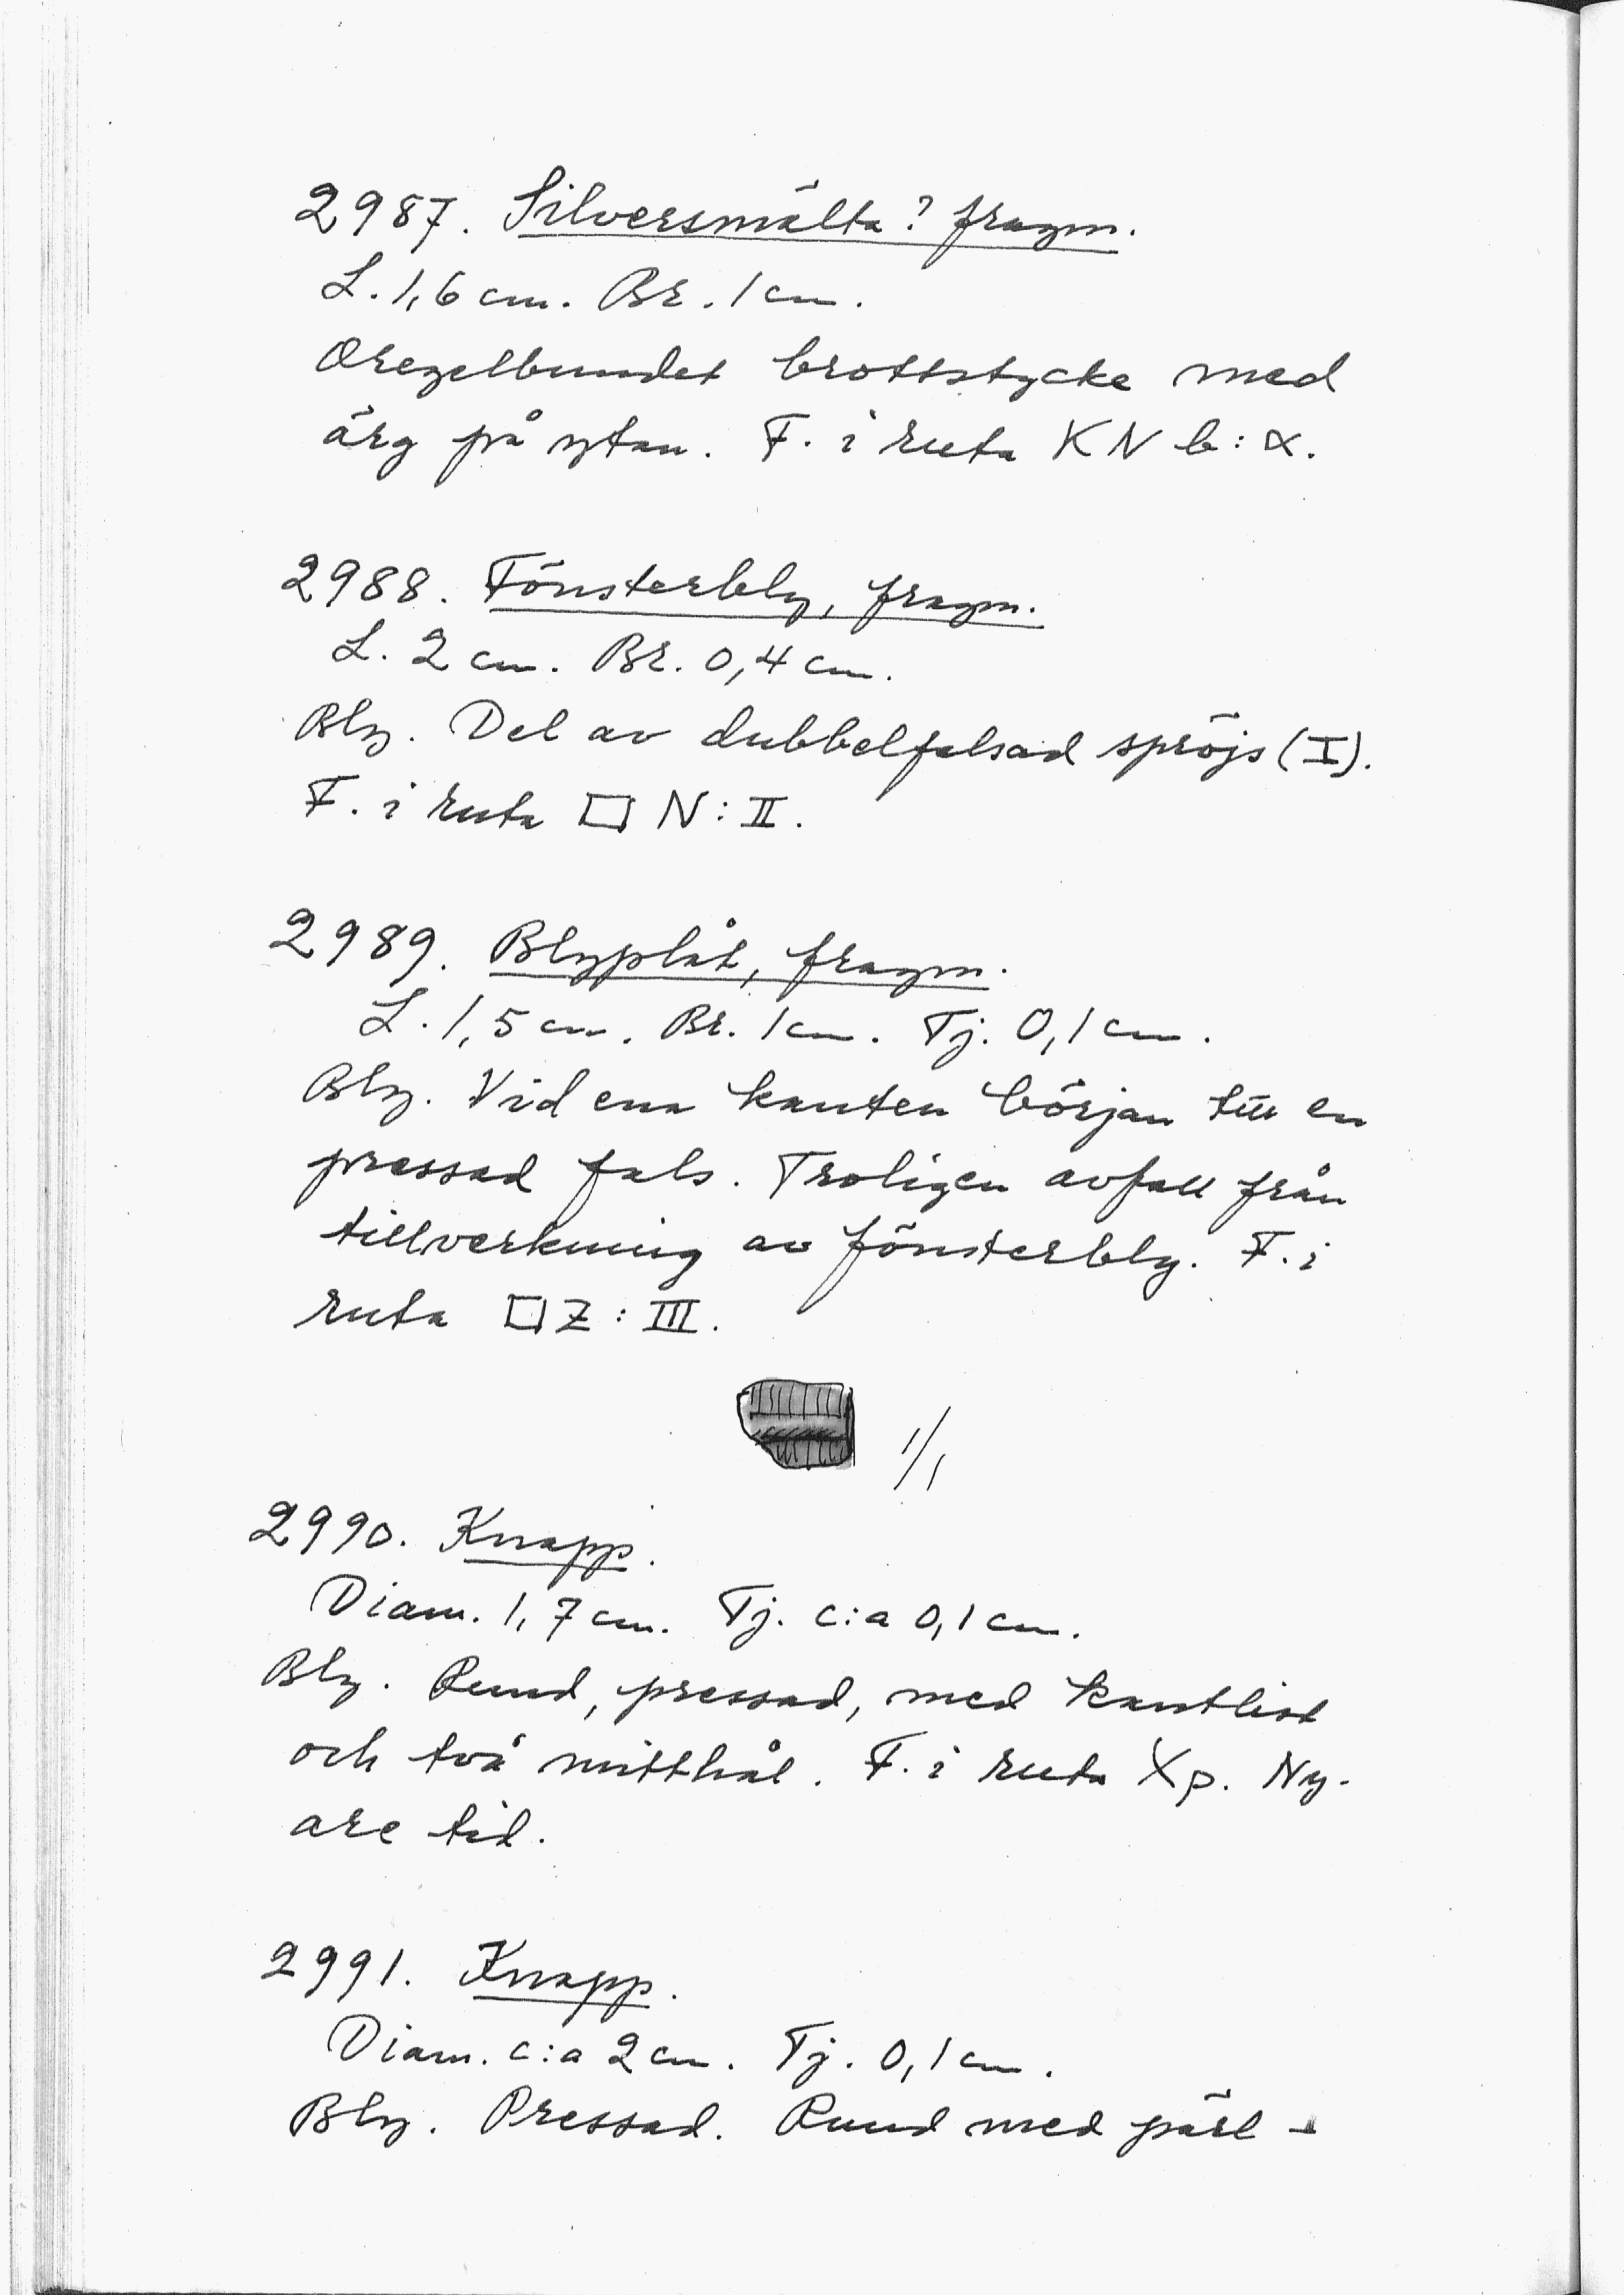 2987. Silversmälta? fragm.
L. 1,6 cm. Br. 1 cm.
Oregelbundet brottstycke med
ärg på ytan. F. i ruta KN b:α.
2988. Fönsterbly, fragm.
L. 2 cm. Br. 0,4 cm.
Bly. Del av dubbelfalsad spröjs (I).
F. i ruta □ N: II.
2989. Blyplåt, fragm.
L. 1,5 cm. Br. 1 cm. Tj. 0,1 cm.
Bly. Vid ena kanten början till en
pressad fals. Troligen avfall från
tillverkning av fönsterbly. F. i
ruta □ Z: III.
1/1
2990. Knapp.
Diam. 1,7 cm. Tj. c:a 0,1 cm.
Bly. Rund, pressad, med kantlist
och två mitthål. F. i ruta Xp. Ny-
are tid.
2991. Knapp.
Diam. c:a 2 cm. Tj. 0,1 cm.
Bly. Pressad. Rund med pärl-